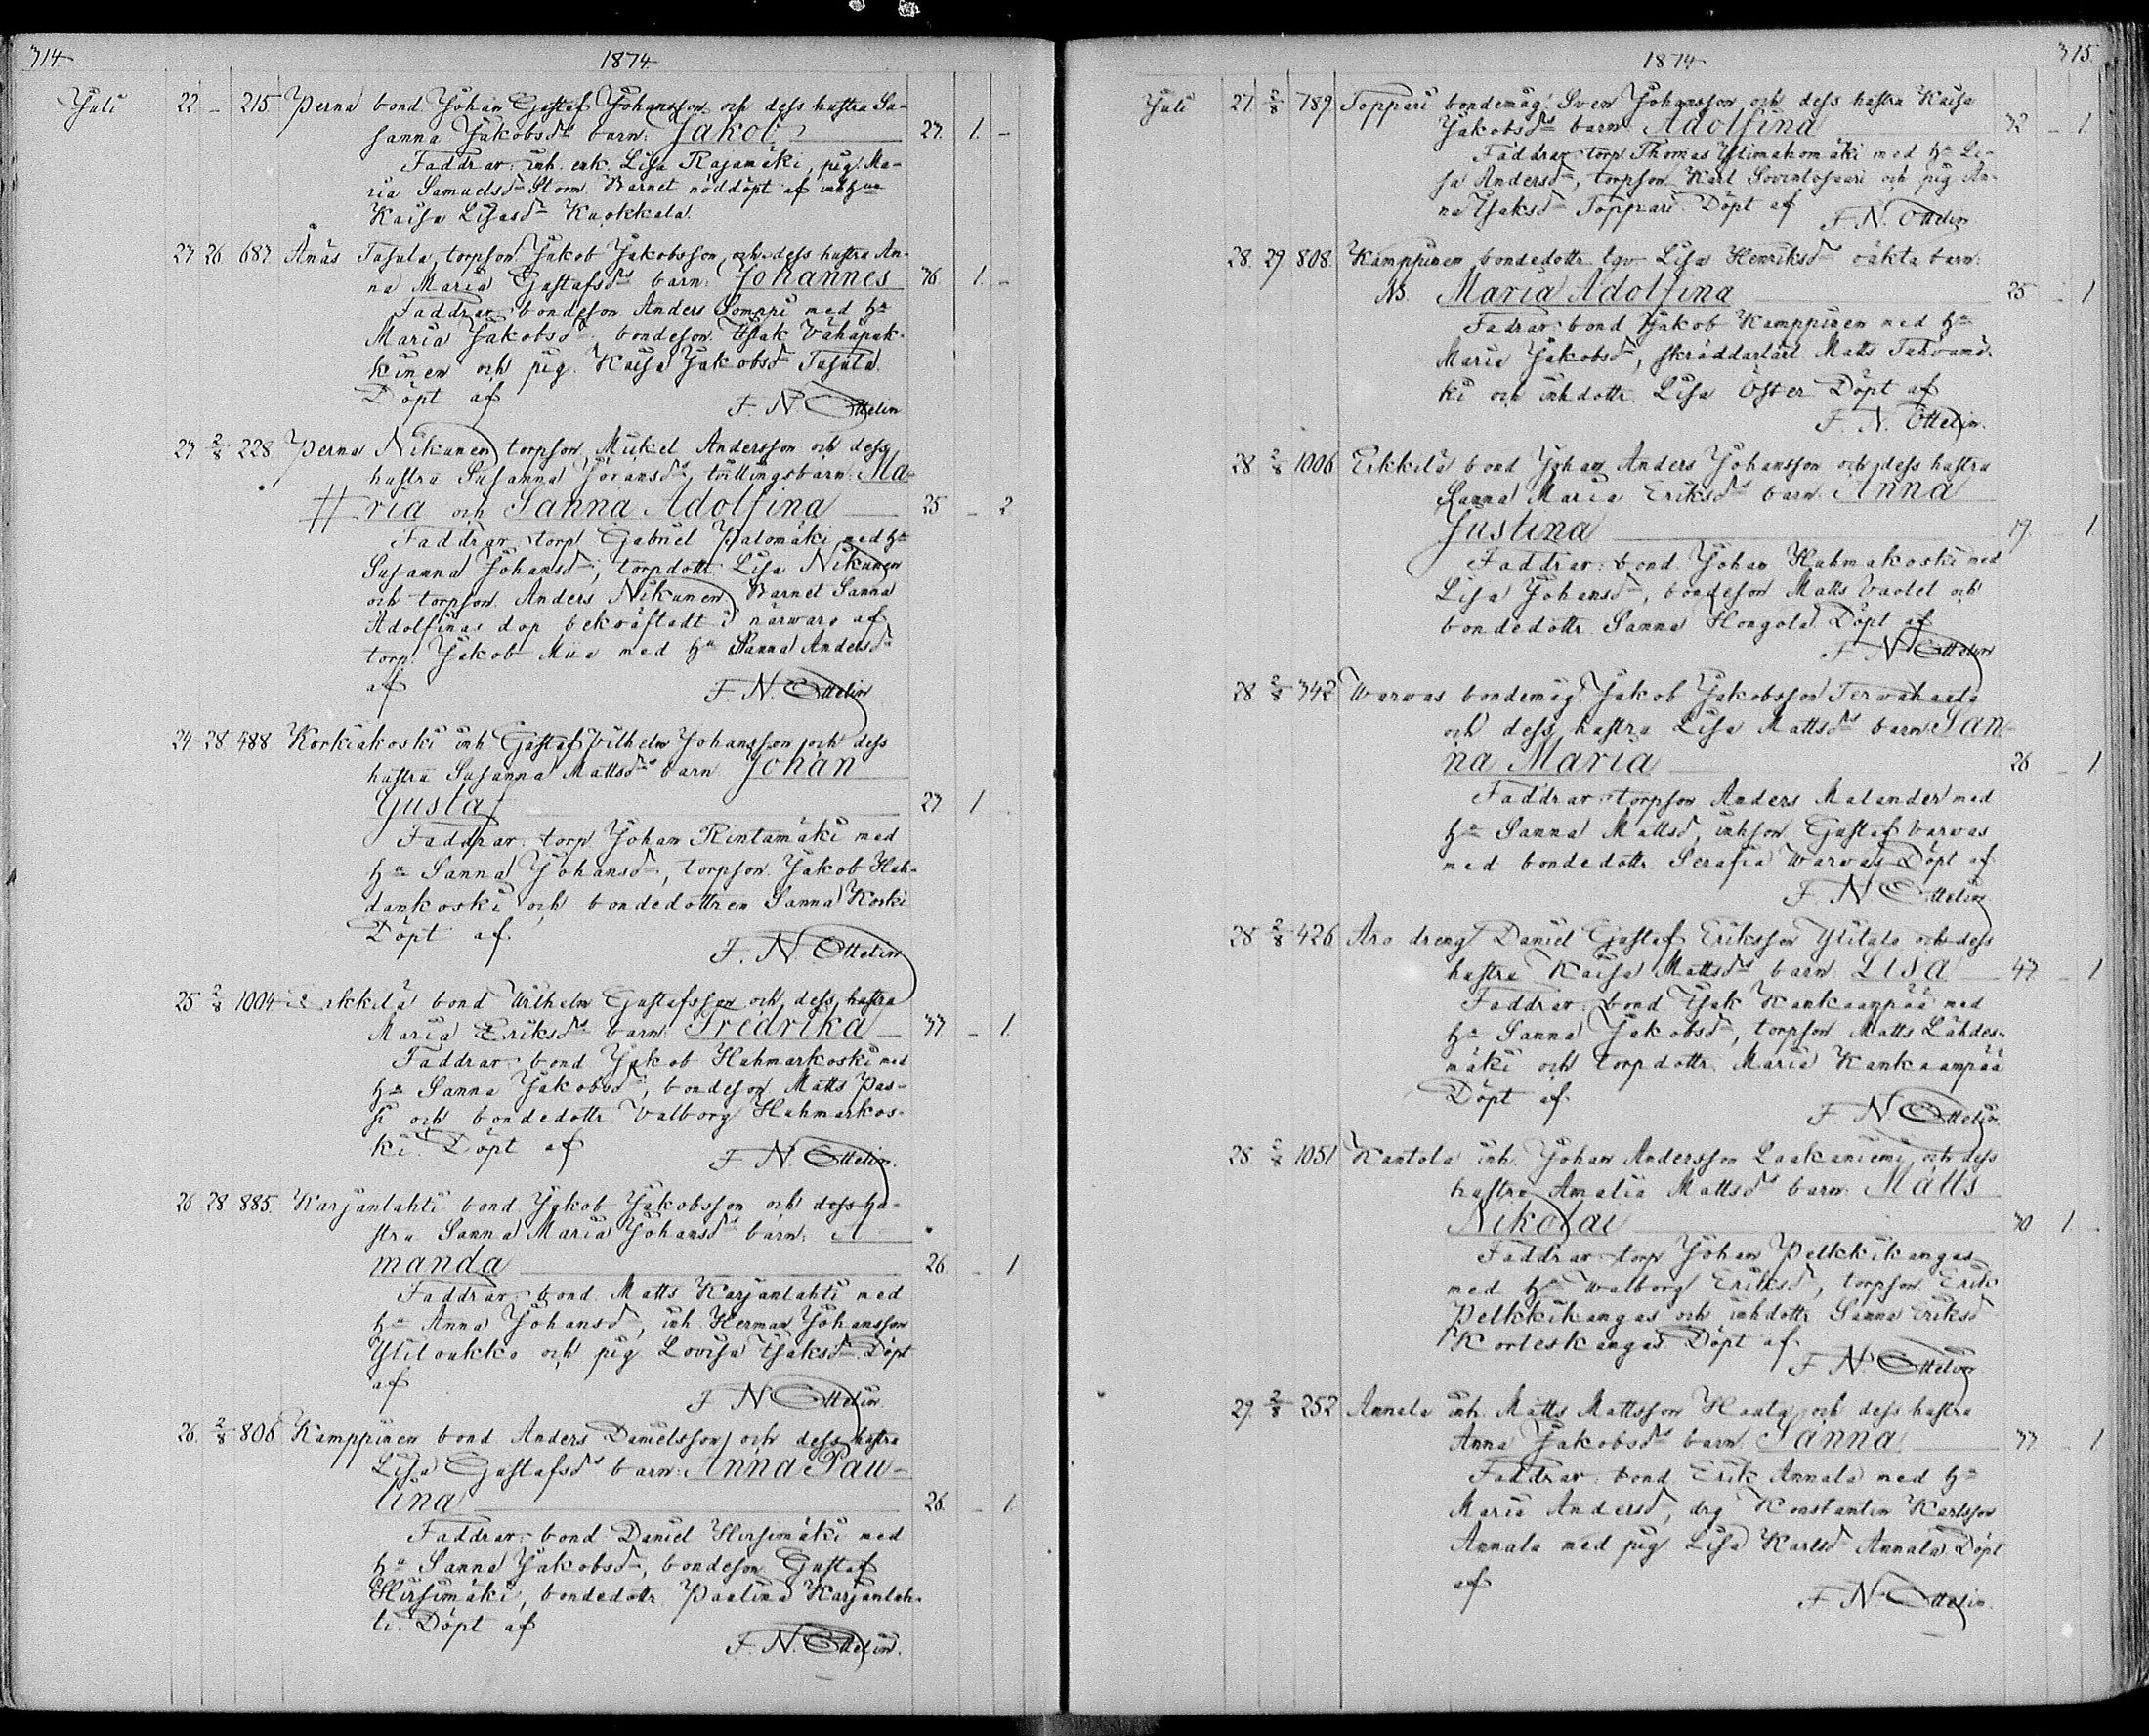 314 1874
Juli 22 – 215 Perna bond Johan Gustaf Johansson och dess hustru Su-
sanna Jakobsdrs barn: Jakob 27. 1. –
Faddrar: inh. enk. Lisa Rajamäki, pig. Ma-
ria Samuelsdr Storm. Barnet nöddöpt af inh
Kaisa Lisasdr Kuokkala.
23 26 687. Ånäs Tasula, torpson Jakob Jakobsson, och dess hustru An-
na Maria Gustafsdrs barn: Johannes 36. 1. –
Faddrar: bondeson Anders Somppi med hu
Maria Jakobsdr, bondeson Isak Vähäpak-
kinen och pig. Kaisa Jakobsdr Tasula.
Döpt af F. N. Ottelin
23 2/8 228 Perna Nikunen torpson Mickel Andersson och dess
hustru Susanna Göransdrs tvillingsbarn: Ma-
ria och Sanna Adolfina 25 – 2
Faddrar: torp Gabriel Palomäki med hu
Susanna Johansdr, torpdottr Lisa Nikunen
och torpson Anders Nikunen. Barnet Sanna
Adolfinas dop bekräftadt i närwaro af
torp. Jakob Mua med hu Sanna Andersdr
af F. N. Ottelin
24 28 488 Korkiakoski inh Gustaf Vilhelm Johansson och dess
hustru Susanna Mattsdrs barn Johan
Gustaf 27 1
Faddrar: torp Johan Rintamäki med
hu Sanna Johansdr, torpson Jakob Huh-
dankoski och bondedottren Sanna Koski
Döpt af F. N. Ottelin
25 2/8 1004 Erkkilä bond Wilhelm Gustafsson och dess hustru
Maria Eriksdrs barn: Fredrika 33 – 1.
Faddrar: bond Jakob Hahmarkoski med
hu Sanna Jakobsdr, bondeson Matts Pas-
si och bondedottr Valborg Hahmarkos-
ki. Döpt af F. N. Ottelin.
26 28 885. Karjanlahti bond Jakob Jakobsson och dess hu-
stru Sanna Maria Johansdrs barn: A-
manda 26. – 1
Faddrar: bond Matts Karjanlahti med
hu Anna Johansdr, inh. Herman Johansson
Yliloukko och pig Lovisa Isaksdr. Döpt
af F. N. Ottelin.
26. 2/8 806. Kamppinen bond Anders Danielsson och dess hustru
Lisa Gustafsdrs barn: Anna Pau-
lina 26. – 1.
Faddrar: bond Daniel Hirsimäki med
hu Sanna Jakobsdr, bondeson Gustaf
Hirsimäki, bondedottr Paulina Karjanlah-
ti. Döpt af F. N. Ottelin.
1874 315.
Juli 27. 2/8 789. Toppari bondemåg Sven Johansson och dess hustru Kaisa
Jakobsdrs barn: Adolfina 32 – 1
Faddrar: torp Thomas Ylimahomäki med hu Li-
sa Andersdr, torpson Karl Sovintosaari och pig An-
na Isaksdr Toppari. Döpt af F. N. Ottelin
28. 29 808. Kamppinen bondedottr lqv Lisa Henriksdrs oäkta barn:
Nb. Maria Adolfina 25 – 1
Fadrar: bond Jakob Kamppinen med hu
Maria Jakobsdr, skräddarlärl Matts
ki och inhdottr. Lisa Öster Döpt af
F. N. Ottelin.
28 2/8 1006 Erkkilä bond Johan Anders Johansson och dess hustru
Sanna Maria Eriksdrs barn Anna
Justina 19. – 1
Faddrar: bond Johan Hahmakoski med
Lisa Johansdr, bondeson Matts och
bondedottr Sanna Hongola Döpt af
F. N. Ottelin
28 2/8 342 Warwas bondemåg Jakob Jakobsson Terwahauta
och dess hustru Lisa Mattsdrs barn San-
na Maria 26 – 1
Faddrar: torpson Anders Malander med
hu Sanna Mattsdr, inhson Gustaf Varwas
med bondedottr. Serafia Warwas Döpt af
F. N. Ottelin
28 2/8 426 Aro dreng Daniel Gustaf Eriksson Ylitalo och dess
hustru Kaisa Mattsdrs barn: Lisa 43 – 1
Faddrar: bond Isak Kankaanpää med
hu Sanna Jakobsdr, torpson Matts Lähdes-
mäki och torpdottr. Maria Kankaanpää
Döpt af F. N. Ottelin
28. 2/8 1051 Kantola inh. Johan Andersson Laakaniemi och dess
hustru Amalia Mattsdrs barn: Matts
Nikolai 30 1 –
Faddrar: torp Johan Pelkkikangas
med hu Walborg Eriksdr, torpson Erik
Pelkkikangas och inhdottr Sanna Eriksdr
Korteskangas Döpt af
F. N. Ottelin
29. 2/8 252 Annala inh. Matts Mattsson Haala och dess hustru
Anna Jakobsdrs barn Sanna 33 – 1
Faddrar: bond Erik Annala med hu
Maria Andersdr, drg Konstantin Karlsson
Annala med pig Lisa Karlsdr Annala Döpt
af F. N. Ottelin.